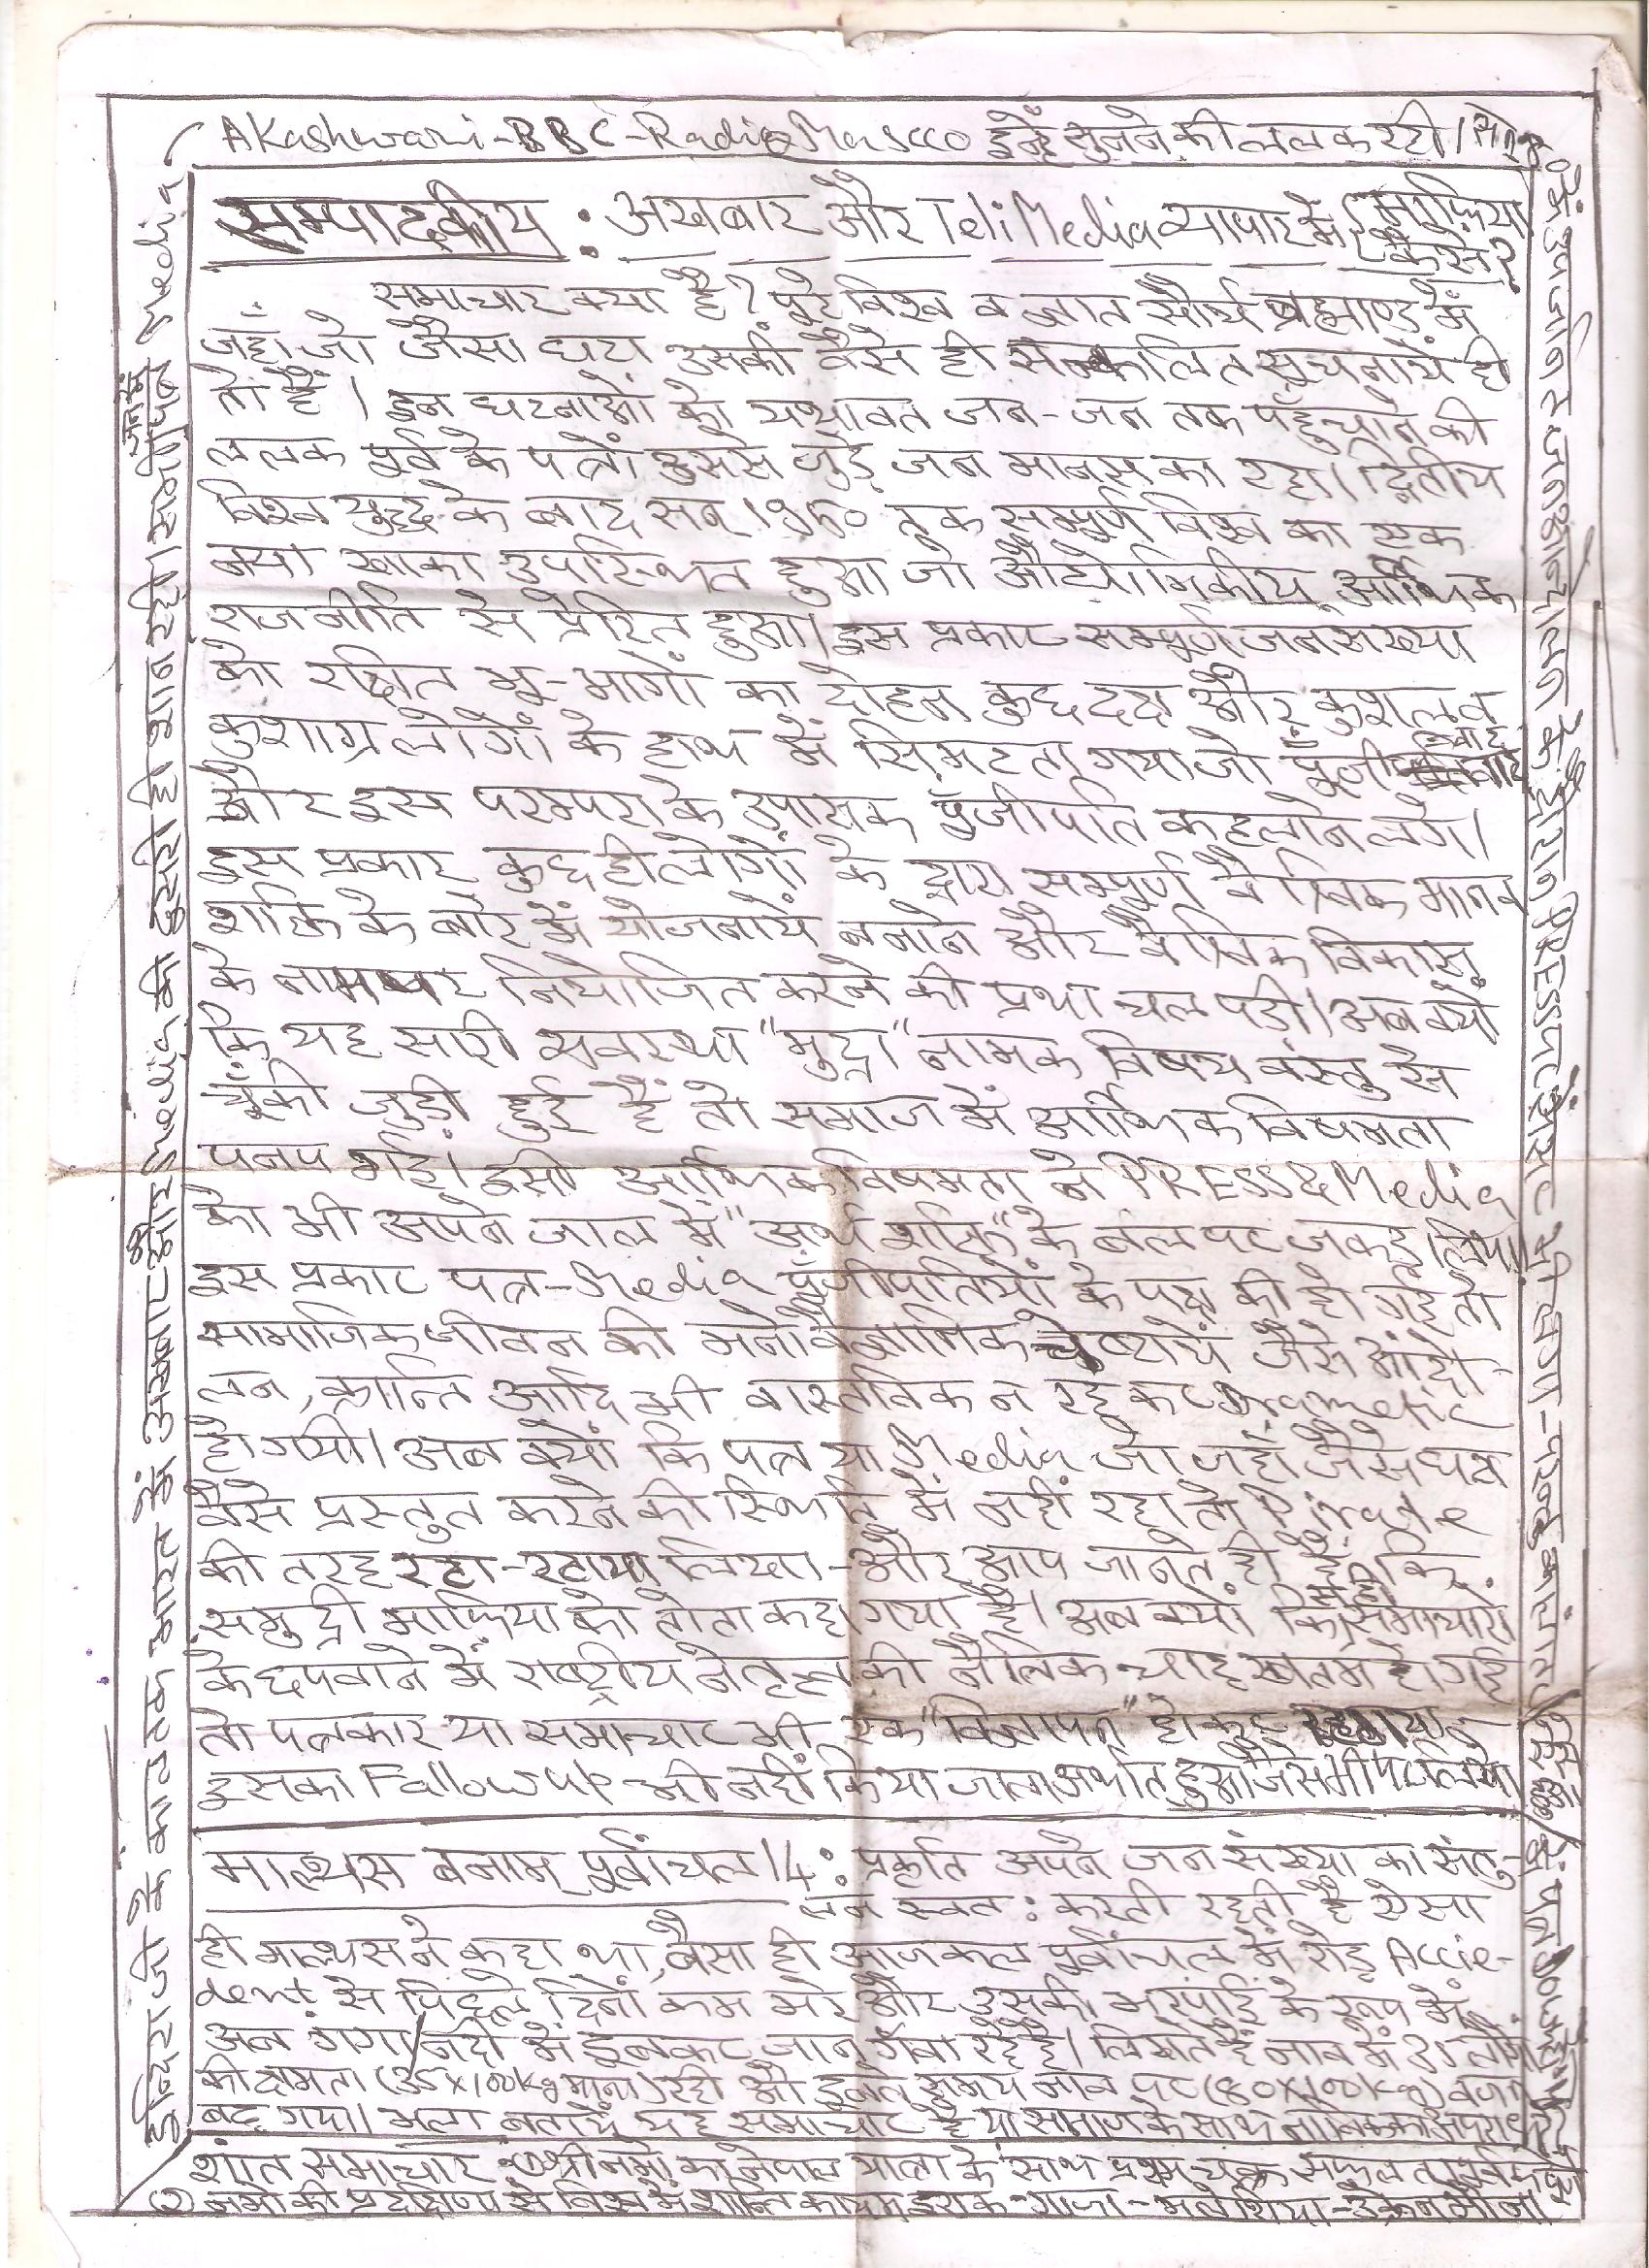 Akashwani-BBC-Radio Mascco इन्हें सुनने की ललक रही।
सम्पादकीय : अखबार और TeliMedia व्यापार में माफिया कैसे?
समाचार क्या है? पूरे विश्व व ज्ञात सौर्य ब्रह्माण्ड में
जहाँ जो जैसा घटा उसकी वैसे ही संकलित सूचनायें ही
तो हैं। इन घटनाओं को यथावत जन-जन तक पहुँचाने की
ललक पूर्व के पत्रों उससे जुड़े जन मानस का रहा। द्वितीय
विश्व युद्ध के बाद सन् 1960 तक सम्पूर्ण विश्व का एक
नया खाका उपस्थित हुआ जो औद्योगिकीय आर्थिक
राजनीति से प्रेरित हुआ। इस प्रकार सम्पूर्ण जनसंख्या
को रक्षित भू-भागों का दोहन कुछ दक्ष और कुशल व
कुशाग्र लोगों के हाथ में सिमटता गया जो पूँजीवाद
और इस परम्परा के उपासक पूँजीपति कहलाने लगे।
इस प्रकार कुछ ही लोगों के द्वारा सम्पूर्ण वैश्विक मानव
शक्ति के बारे में योजनायें बनाने और वैश्विक विकास
के नाम पर नियोजित करने की प्रथा चल पड़ी। अब क्यों
कि यह सारी व्यवस्था "मुद्रा" नामक विषय वस्तु से
चूंकी जुड़ी हुई है तो समाज में आर्थिक विषमता
पनप गई। इसी आर्थिक विषमता ने PRESS&Media
को भी अपने जाल में "अर्थ शक्ति" के बल पर जकड़ लिया।
इस प्रकार पत्र-Media पूंजीपतियों के पक्ष की हो गई तो
सामाजिक जीवन की मनोवैज्ञानिक चेष्टायें जैसे आंदो-
लन, क्रान्ति आदि भी वास्तविक न रह कर Drametic
हो गयी। अब क्यों कि पत्र या Media जो जहाँ जैसे घटा
वैसे प्रस्तुत करने की स्थिति में नहीं रहा तो Pirate
की तरह रटा-रटाया लिखा-और आप जानते ही हैं कि
समुद्री माफिया को तोता कहा गया है। अब क्यों कि सही समाचारों
के छपवाने में राष्ट्रीय नेतृत्व की नैतिक चाह खतम हो गई
तो पत्रकार या समाचार भी एक "विज्ञापन" हो कर रह गया
इसका Fallow up भी नहीं किया जाता अर्थात् हुआ जैसे भी पर लिखा
माल्थस बनाम पूर्वांचल 14: प्रकृति अपने जन संख्या का संतु-
लन स्वत: करती रहती है ऐसा
ही माल्थस ने कहा था, वैसा ही आजकल पूर्वांचल में रोड़ Accie-
dent से पिछले दिनों कम मरे और उसकी भरपाई के रूप में
अब गंगा/नदी में डूबकर जान गँवा रहे हैं। लिखते हैं नाव में 35 लोगों
की क्षमता (35x100kg माना) रही औ डूबते समय नाव पर (80x100kg) वजन
बढ़ गया। भला बतायें यह समाचार है या समाज के साथ
शांत समाचार श्री नमो का नेपाल यात्रा के साथ प्रथम चक्र सफलता
② नमो की प्रदक्षिणा से विश्व में शान्ति कायम इराक-गाजा-मलेशिया-
इन्दिरा जी के काल तक भारत में अखबार और Media की दूसरी ही शान रही। समर्पण जन में Media